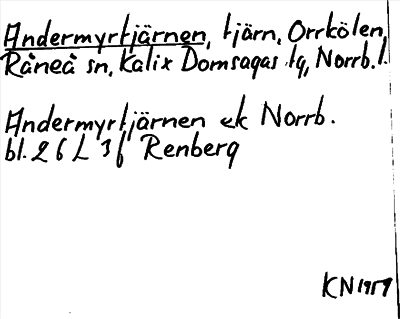 Andermyrtjärnen, tjärn, Orrkölen,
Råneå sn, Kalix Domsagas tg, Norrb. l.
Andermyrtjärnen ek Norrb.
bl. 26 L 3 f Renberg
KN 1959